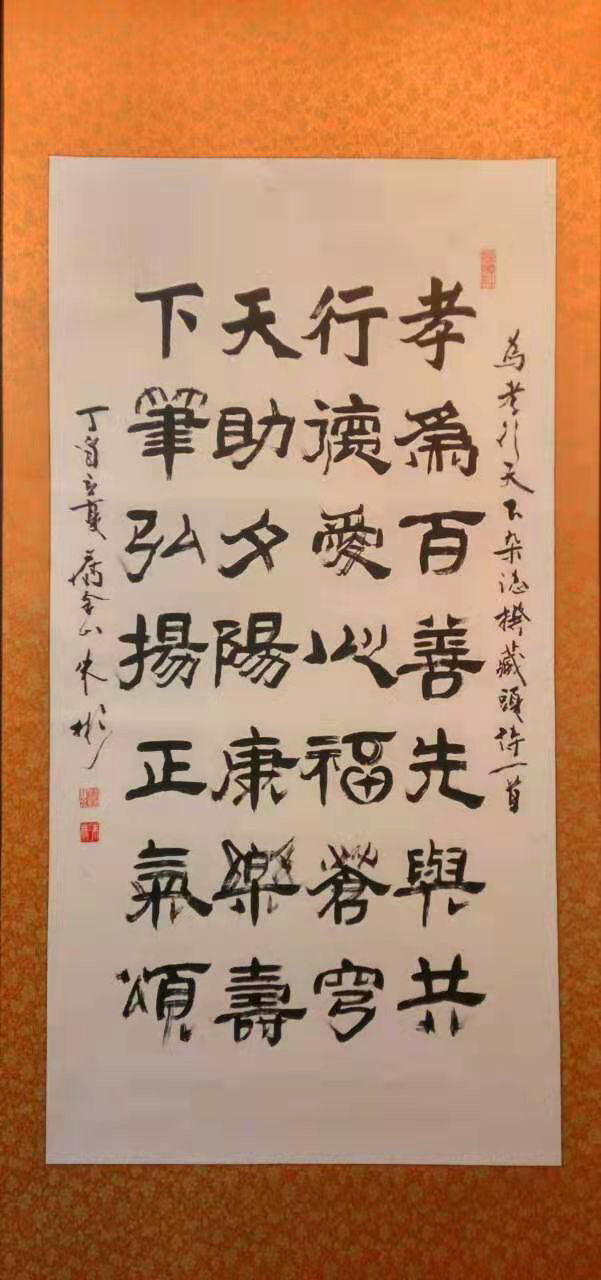 為孝行天下杂志撰藏頭诗一首
孝為百善先與共
行德愛心福蒼穹
天助夕陽康樂壽
下筆弘揚正氣頌
丁酉立夏 舊金山 朱彬